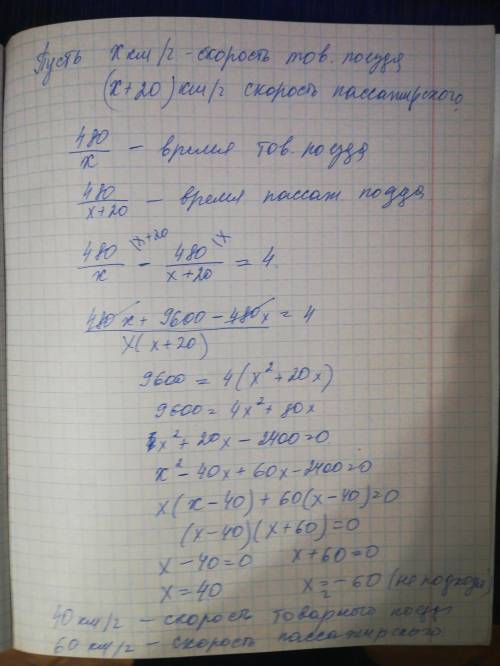 Пусть x км/г - скорость тов. поезда
(x+20) км/г скорость пассажирского
480/x - время тов. поезда
480/x+20 - время пассаж. поезда
480/x (x+20 - 480/x+20 (x = 4
480x + 9600 - 480x / x(x+20) = 4
9600 = 4(x²+20x)
9600 = 4x²+80x
x²+20x-2400=0
x²-40x+60x-2400=0
x(x-40)+60(x-40)=0
(x-40)(x+60)=0
x-40=0 x+60=0
x=40 x₂=-60 (не подходи
40 км/г - скорость товарного
60 км/г - скорость пассажирского